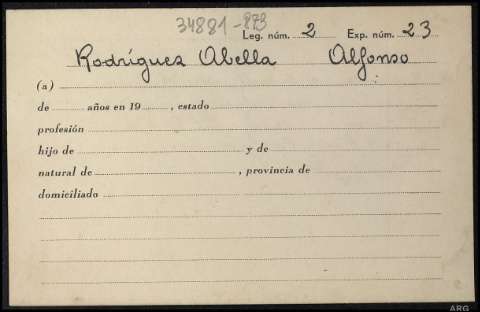 34881-273
Leg. núm. 2 Exp. núm. 23
Rodríguez Abella Alfonso
(a)
de años en 19 , estado
profesión
hijo de y de
natural de , provincia de
domiciliado
ARG